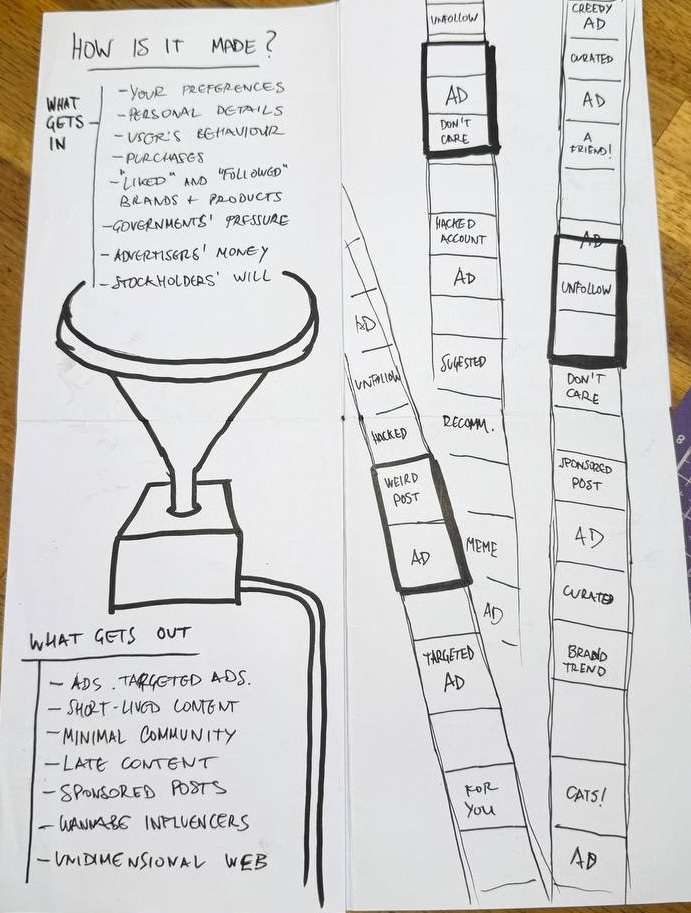 HOW IS IT MADE?
WHAT
GETS
IN
- YOUR PREFERENCES
- PERSONAL DETAILS
- USER'S BEHAVIOUR
- PURCHASES
- "LIKED" AND "FOLLOWED"
BRANDS + PRODUCTS
- GOVERNMENTS' PRESSURE
- ADVERTISERS' MONEY
- STOCKHOLDERS' WILL
WHAT GETS OUT
- ADS. TARGETED ADS.
- SHORT-LIVED CONTENT
- MINIMAL COMMUNITY
- LATE CONTENT
- SPONSORED POSTS
- WANNABE INFLUENCERS
- UNIDIMENSIONAL WEB
AD
UNFOLLOW
HACKED
WEIRD
POST
AD
TARGETED
AD
FOR
YOU
UNFOLLOW
AD
DON'T
CARE
HACKED
ACCOUNT
AD
SUGESTED
RECOMM.
MEME
AD
CREEPY
AD
CURATED
AD
A
FRIEND!
AD
UNFOLLOW
DON'T
CARE
SPONSORED
POST
AD
CURATED
BRAND
TREND
CATS!
AD
8